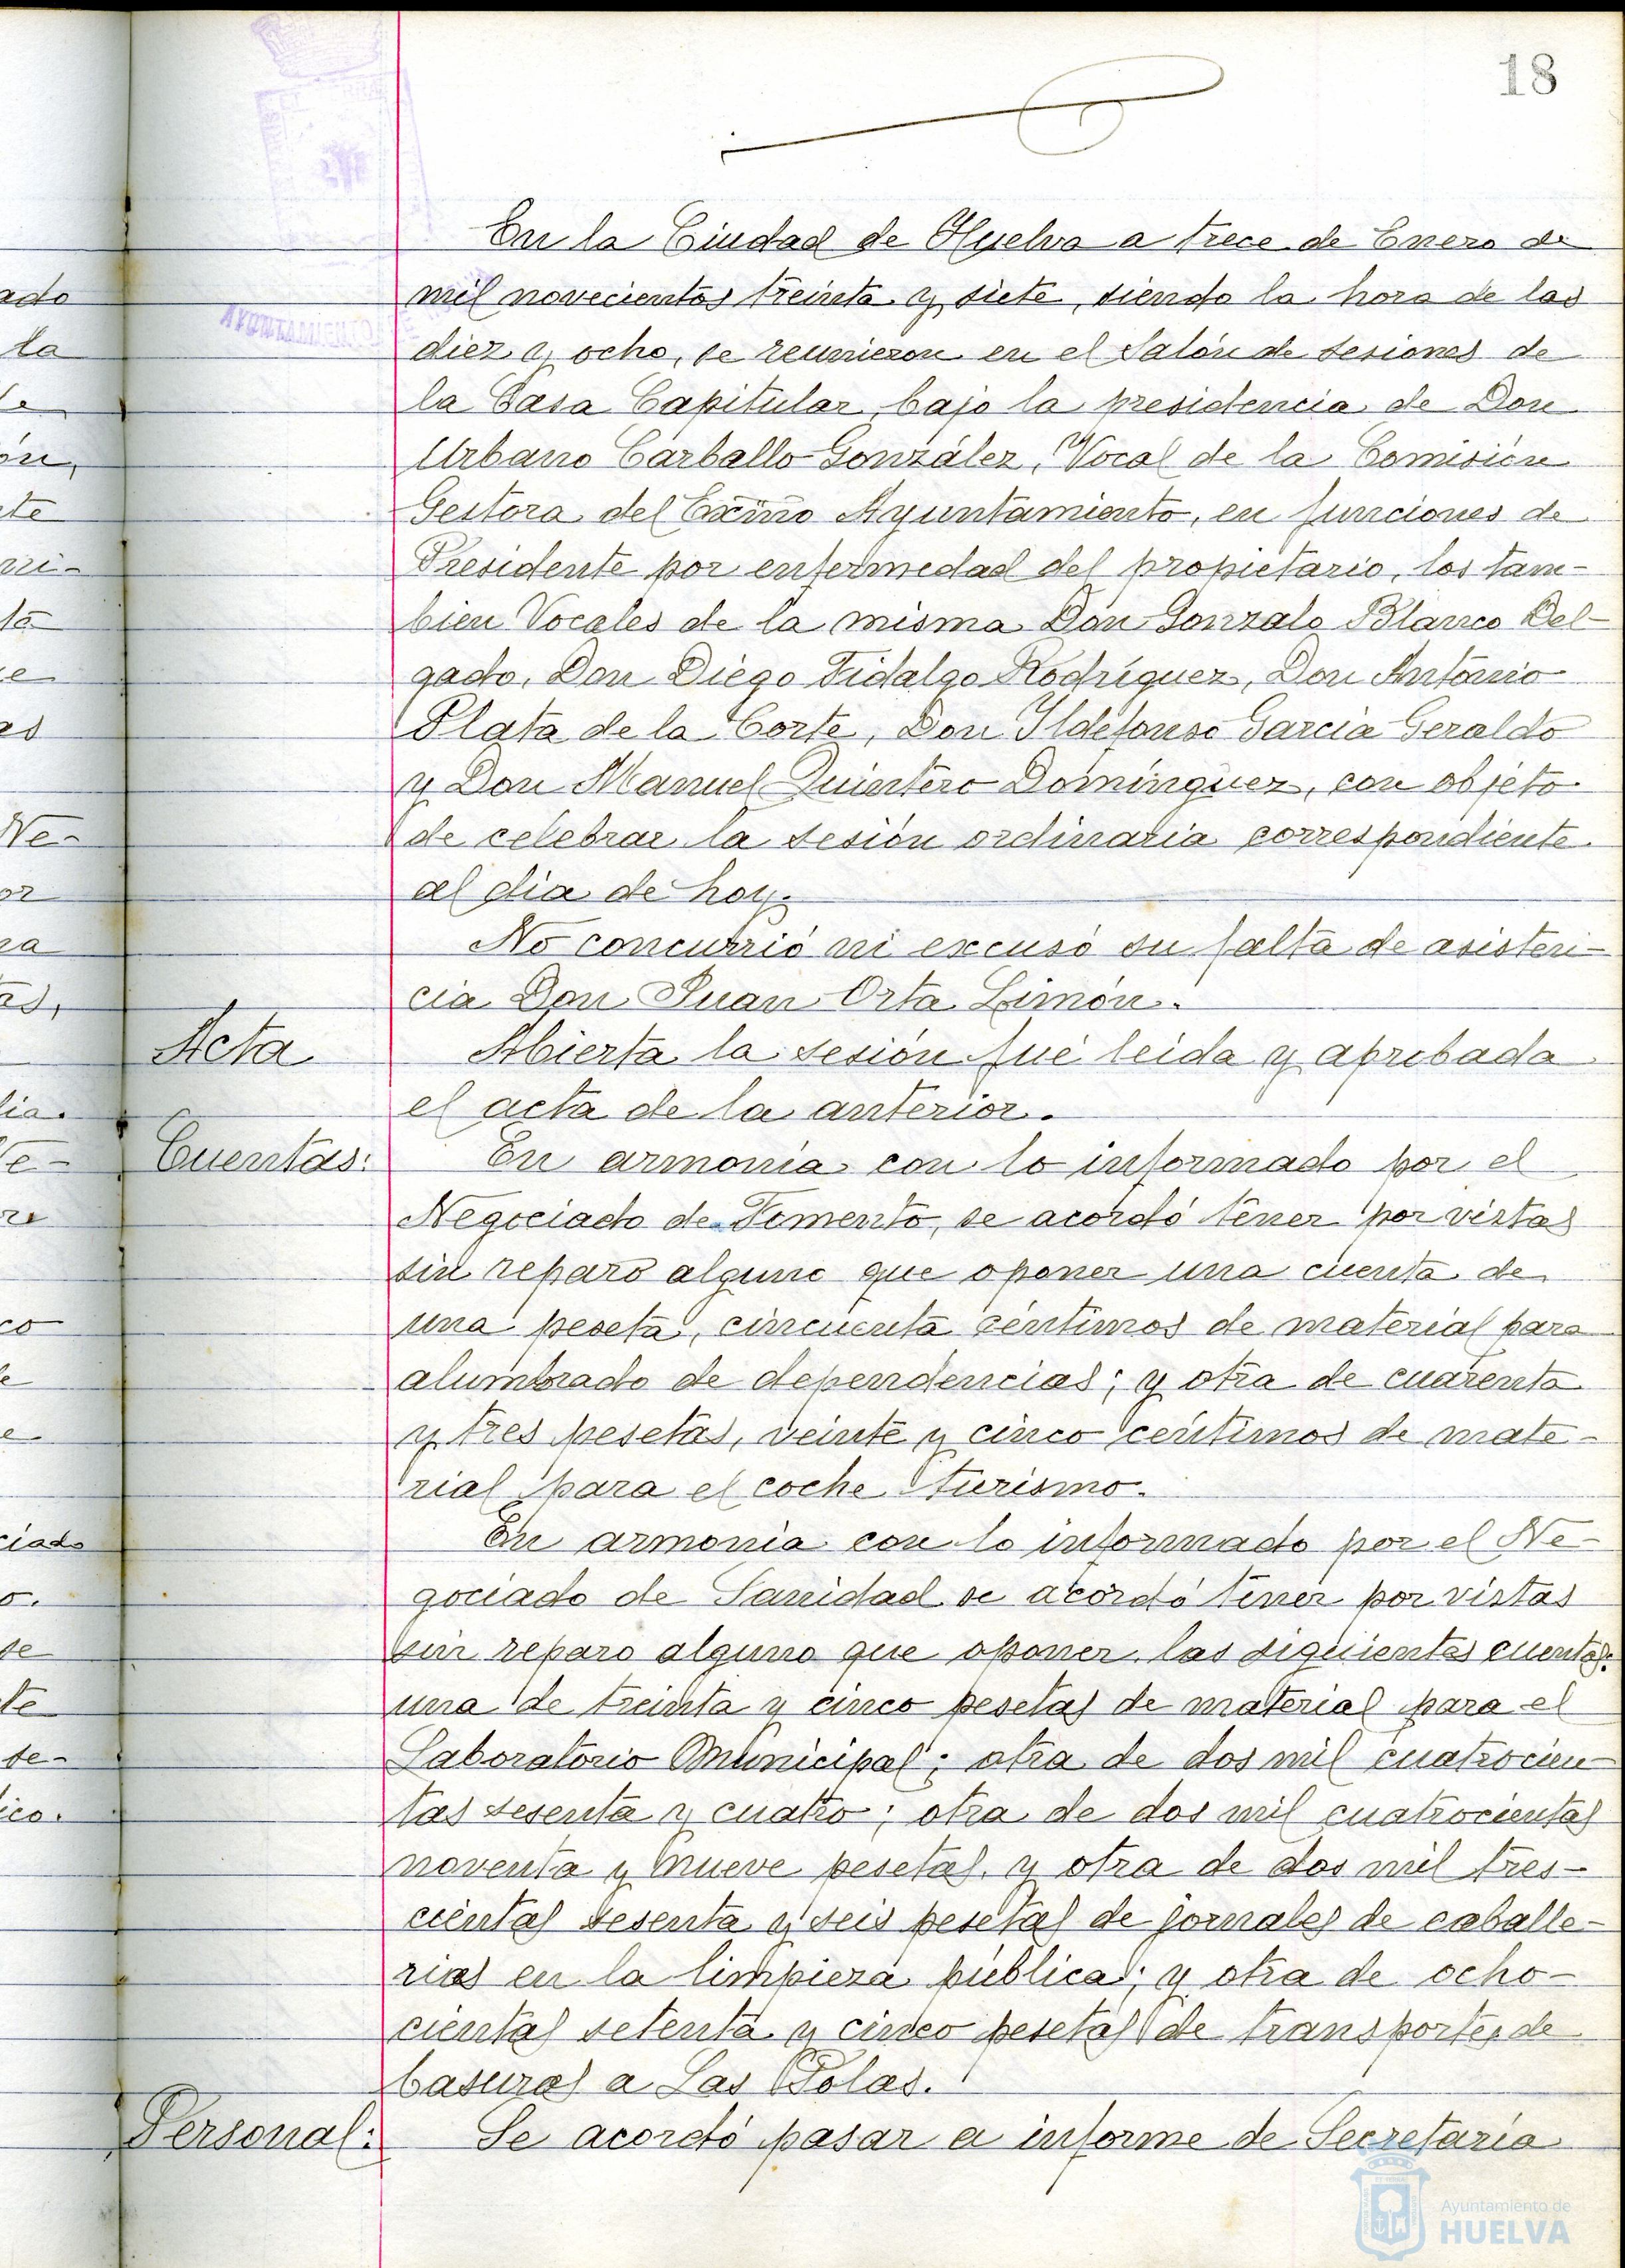 18
En la Ciudad de Huelva a trece de Enero de
mil novecientos treinta y siete, siendo la hora de las
diez y ocho, se reunieron en el Salón de sesiones de
la Casa Capitular, bajo la presidencia de Don
Urbano Carballo González, Vocal de la Comisión
Gestora del Excmo Ayuntamiento, en funciones de
Presidente por enfermedad del propietario, los tam-
bien Vocales de la misma Don Gonzalo Blanco Del-
gado, Don Diego Fidalgo Rodríguez, Don Antonio
Plata de la Corte, Don Ildefonso García Geraldo
y Don Manuel Quintero Domínguez, con objeto
de celebrar la sesión ordinaria correspondiente
al dia de hoy.
No concurrió ni excusó su falta de asisten-
cia Don Juan Orta Limón.
Acta
Abierta la sesión fué leida y aprobada
el acta de la anterior.
Cuentas:
En armonia con lo informado por el
Negociado de Fomento, se acordó tener por vistas
sin reparo alguno que oponer una cuenta de
una peseta, cincuenta céntimos de material para
alumbrado de dependencias; y otra de cuarenta
y tres pesetas, veinte y cinco céntimos de mate-
rial para el coche turismo.
En armonia con lo informado por el Ne-
gociado de Sanidad se acordó tener por vistas
sin reparo alguno que oponer las siguientes cuentas:
una de treinta y cinco pesetas de material para el
Laboratorio Municipal; otra de dos mil cuatrocien-
tas sesenta y cuatro; otra de dos mil cuatrocientas
noventa y nueve pesetas, y otra de dos mil tres-
cientas sesenta y seis pesetas de jornales de caballe-
rias en la limpieza pública; y otra de ocho-
cientas setenta y cinco pesetas de transportes de
basuras a Las Bolas.
Personal:
Se acordó pasar a informe de Secretaría
AYUNTAMIENTO
Ayuntamiento de
HUELVA